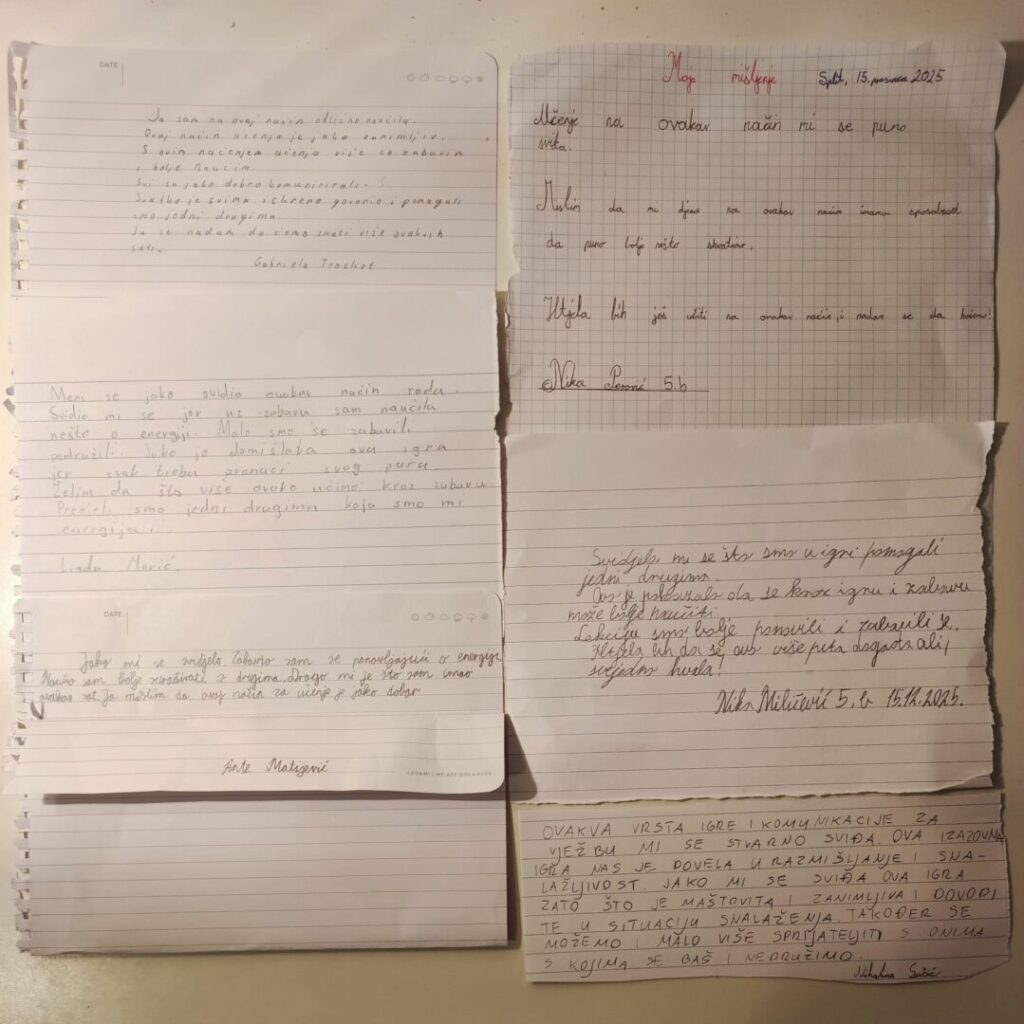 DATE
Ja sam na ovaj način odlično naučila.
Ovaj način učenja je jako zanimljiv.
S ovim načinjem učenju više se zabavim
i bolje naučim.
Svi su jako dobro komunicirali. S
Svatko je svima iskreno govorio i pomagali
smo jedni drugima.
Ja se nadam da ćemo imati više ovakvih
sati.
Gabriela Troskot
Meni se jako svidio ovakav način rada.
Svidio mi se jer uz zabavu sam naučila
nešto o energiji. Malo smo se zabavili
podružili. Jako je domišlata ova igra
jer svak treba pronaći svog para.
Želim da što više ovako učimo kroz zabavu.
smo jedni drugima koja smo mi
energija
Linda Marić.
DATE
Jako mi se svidjelo. Zabavio sam se ponavljajući o energiji
Naučio sam bolje surađivati s drugima. Drago mi je što sam imao
ovakav sat. Ja mislim da ovaj način za učenje je jako dobar
Ante Matijević
LEGAMI | WE ARE DREAMERS
Moje mišljenje Split, 15. prosinca 2025
Učenje na ovakav način mi se puno
sviđa.
Mislim da mi djeca na ovakav način imamo sposobnost
da puno bolje nešto shvatimo.
Htjela bih još učiti na ovakav način, i nadam se da hoćemo!
Nika Perović 5.b
Svidjelo mi se što smo u igri pomagali
jedni drugima.
Ovo je pokazalo da se kroz igru i zabavu
može bolje naučiti.
Lekciju smo bolje ponovili i zabavili se.
Htjela bih da se ovo više puta događa ali,
svejedno hvala!
Nika Milićević 5. b 15.12.2025.
OVAKVA VRSTA IGRE I KOMUNIKACIJE ZA
VJEŽBU MI SE STVARNO SVIĐA. OVA IZAZOVNA
IGRA NAS JE DOVELA U RAZMIŠLJANJE I SNA-
LAŽLJIVOST. JAKO MI SE SVIĐA OVA IGRA
ZATO ŠTO JE MAŠTOVITA I ZANIMLJIVA I DOVODI
TE U SITUACIJU SNALAŽENJA. TAKOĐER SE
MOŽEMO I MALO VIŠE SPRIJATELJITI S ONIMA
S KOJIMA SE BAŠ I NEDRUŽIMO.